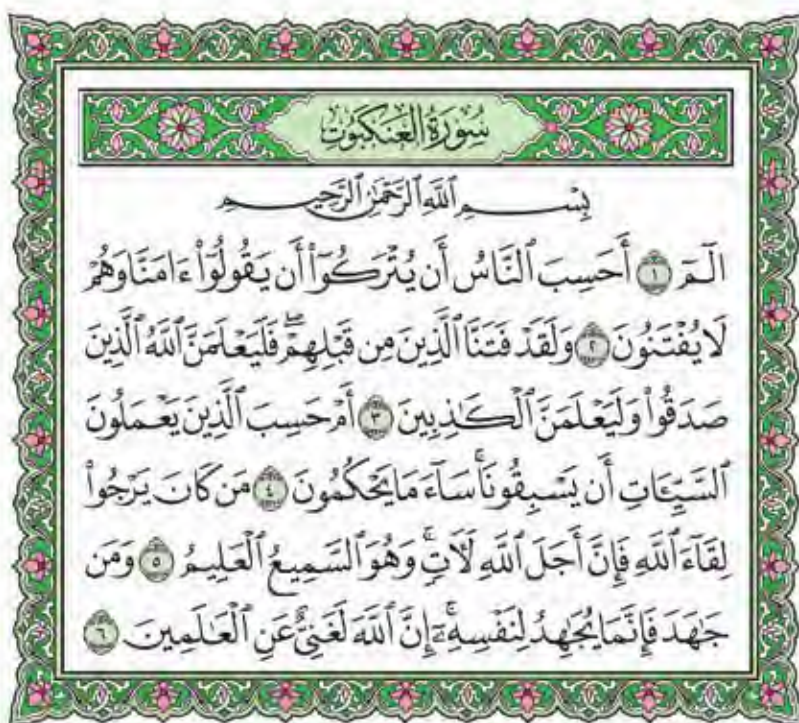 سُورَةُ الْعَنكَبُوتِ
بِسْمِ ٱللَّهِ ٱلرَّحْمَٰنِ ٱلرَّحِيمِ
الٓمٓ ١ أَحَسِبَ ٱلنَّاسُ أَن يُتْرَكُوٓا۟ أَن يَقُولُوٓا۟ ءَامَنَّا وَهُمْ
لَا يُفْتَنُونَ ٢ وَلَقَدْ فَتَنَّا ٱلَّذِينَ مِن قَبْلِهِمْ ۖ فَلَيَعْلَمَنَّ ٱللَّهُ ٱلَّذِينَ
صَدَقُوا۟ وَلَيَعْلَمَنَّ ٱلْكَٰذِبِينَ ٣ أَمْ حَسِبَ ٱلَّذِينَ يَعْمَلُونَ
ٱلسَّيِّـَٔاتِ أَن يَسْبِقُونَا ۚ سَآءَ مَا يَحْكُمُونَ ٤ مَن كَانَ يَرْجُوا۟
لِقَآءَ ٱللَّهِ فَإِنَّ أَجَلَ ٱللَّهِ لَـَٔاتٍ ۚ وَهُوَ ٱلسَّمِيعُ ٱلْعَلِيمُ ٥ وَمَن
جَٰهَدَ فَإِنَّمَا يُجَٰهِدُ لِنَفْسِهِۦٓ ۚ إِنَّ ٱللَّهَ لَغَنِىٌّ عَنِ ٱلْعَٰلَمِينَ ٦